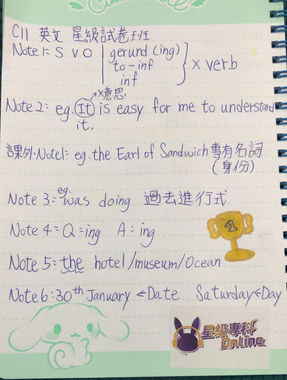 C11 英文 星級試卷班
Note 1: S V O gerund (ing)
to-inf
inf
x verb
x意思
Note 2: eg. It is easy for me to understand
it.
課外·Note1: eg. the Earl of Sandwich 專有名詞
(身份)
eg.
Note 3: was doing 過去進行式
Note 4: Q: ing A: ing
Note 5: the hotel/museum/Ocean
Note 6: 30th January ← Date Saturday ← Day
1
星級專科
Online